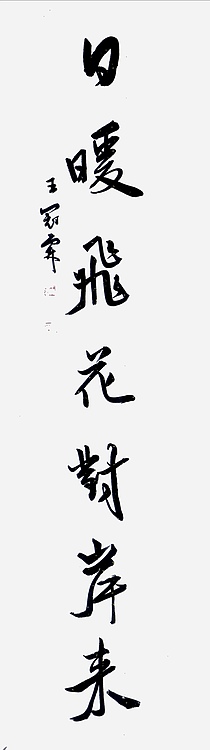 日暖飛花對岸来
王冠霖